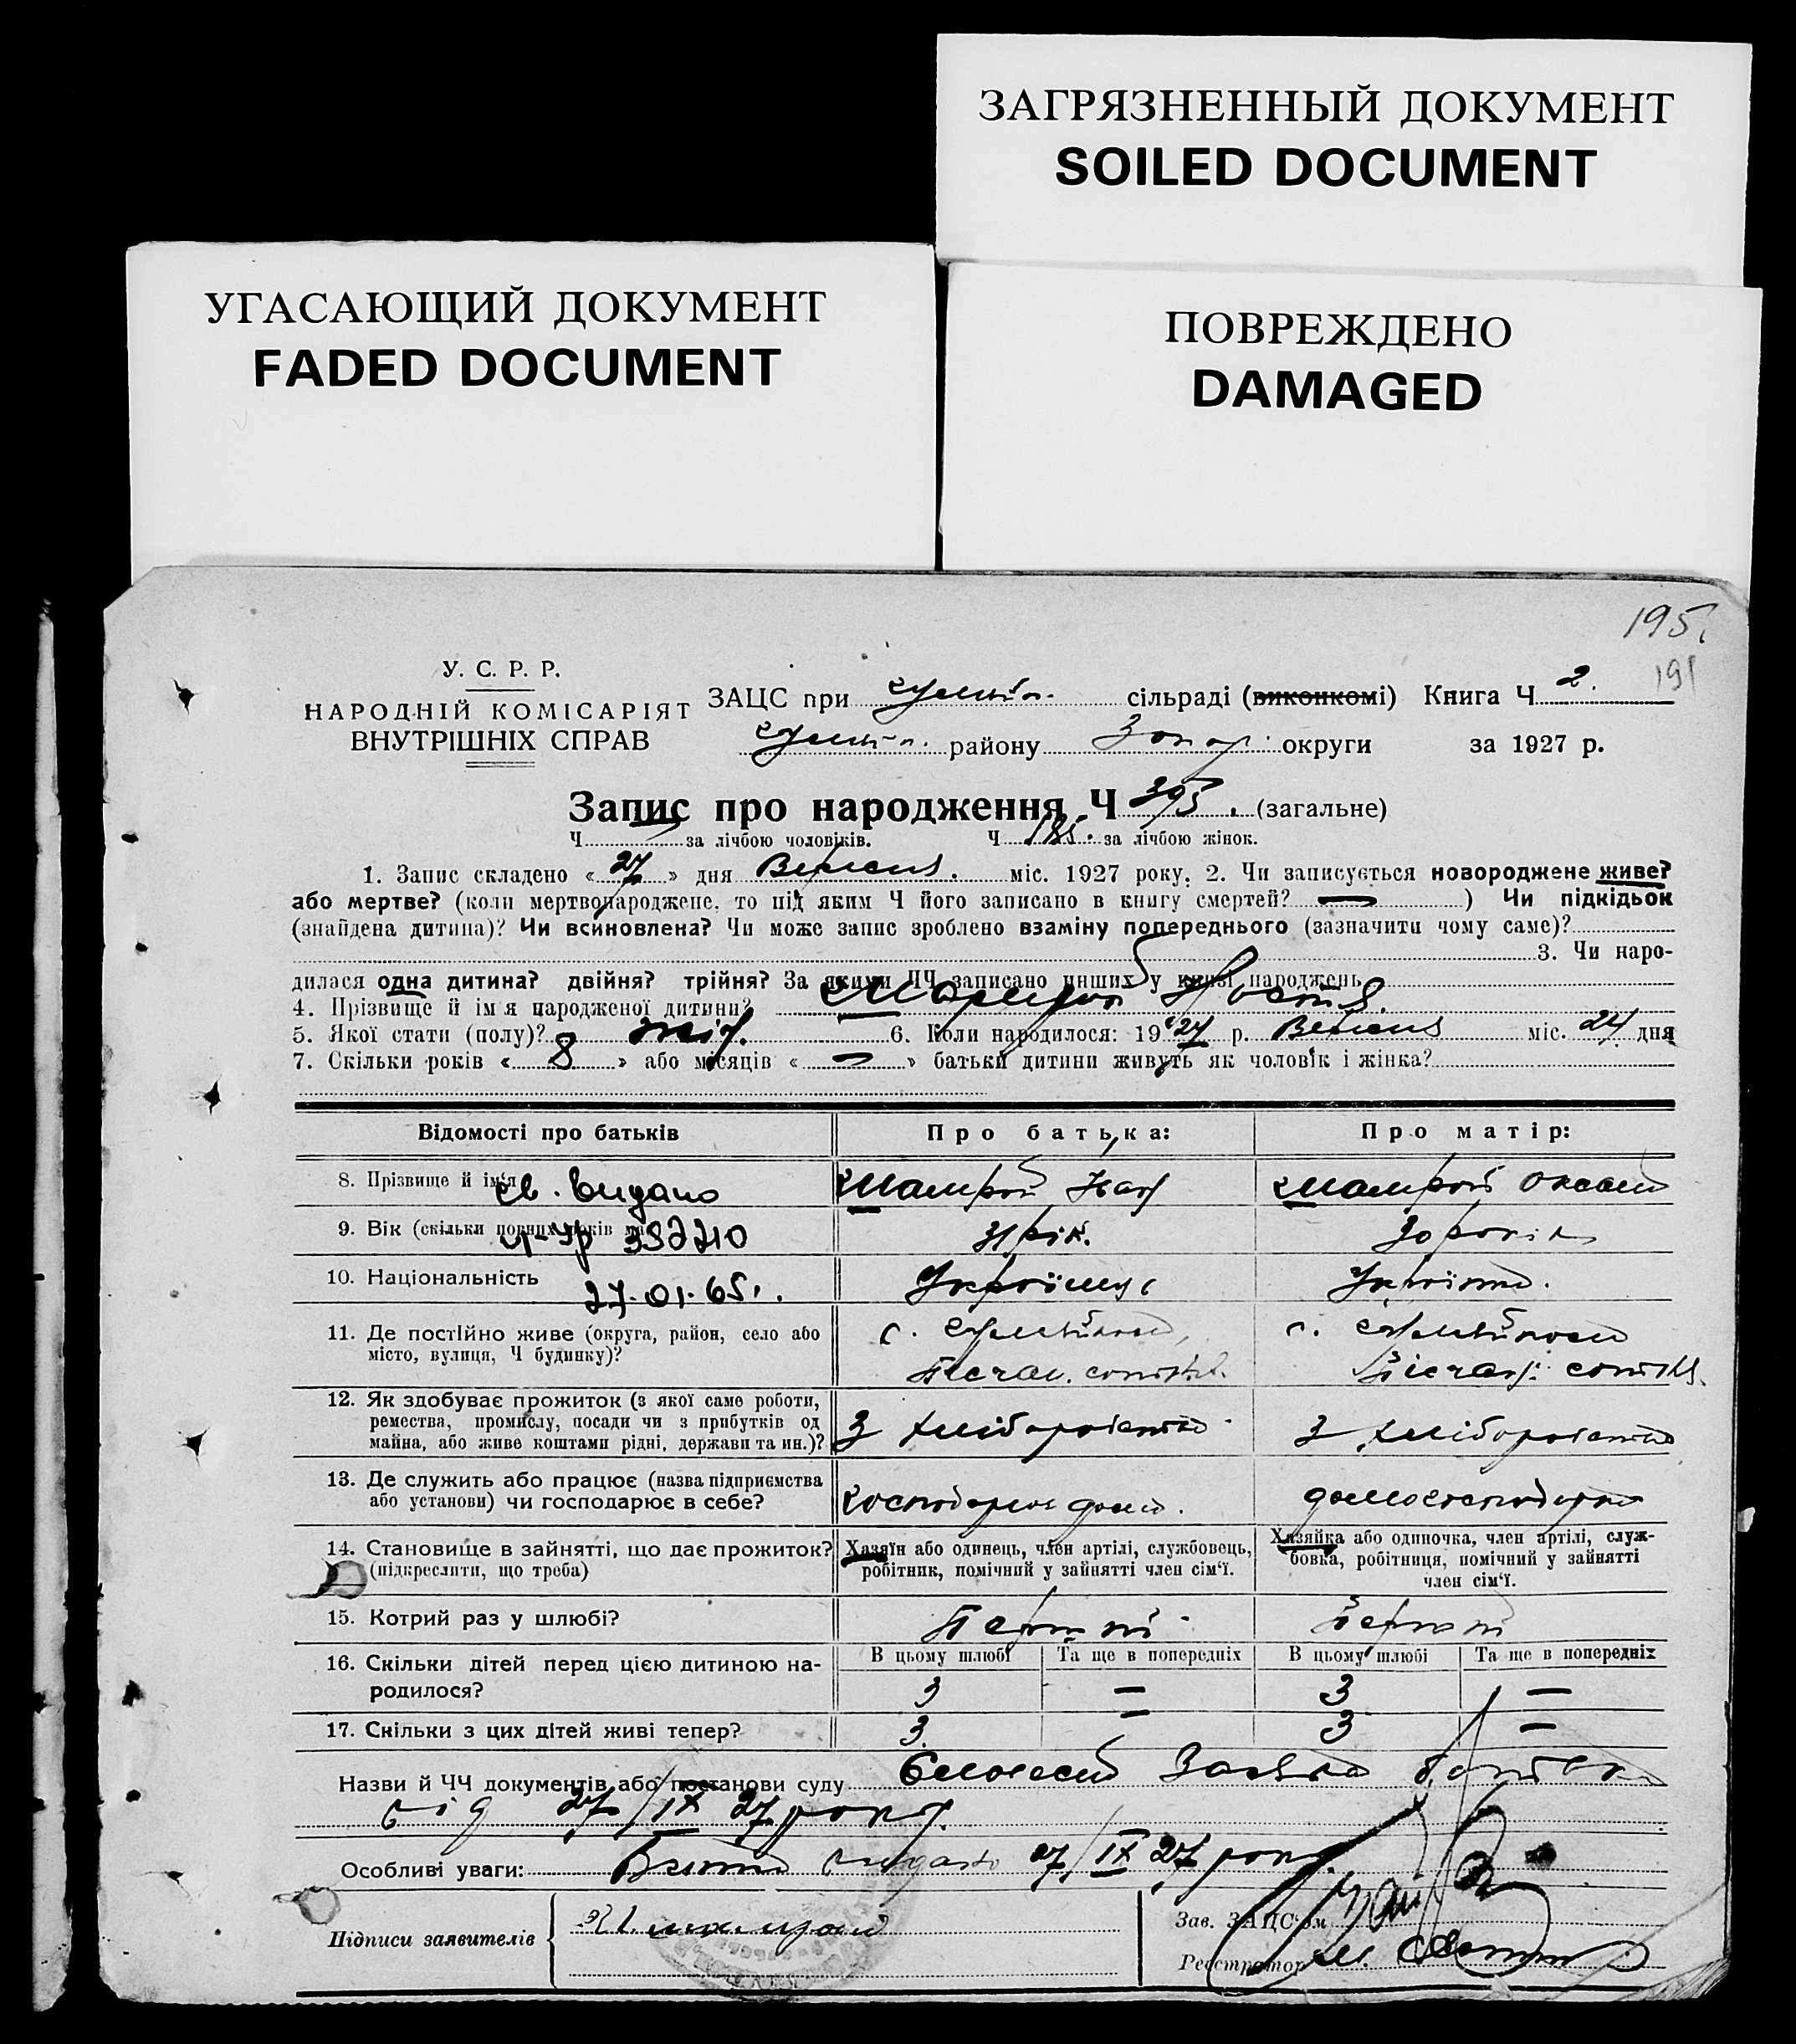 ЗАГРЯЗНЕННЫЙ ДОКУМЕНТ
SOILED DOCUMENT
УГАСАЮЩИЙ ДОКУМЕНТ
FADED DOCUMENT
ПОВРЕЖДЕНО
DAMAGED
195.
191
У. С. Р. Р.
НАРОДНІЙ КОМІСАРІЯТ
ВНУТРІШНІХ СПРАВ
ЗАЦС при сільраді (виконкомі) Книга Ч 2.
району Запор. округи за 1927 р.
Запис про народження Ч 395. (загальне)
Ч за лічбою чоловіків. Ч 185. за лічбою жінок.
1. Запис складено « 27 » дня Вересня. міс. 1927 року. 2. Чи записується новороджене живе?
або мертве? (коли мертвонароджене, то під яким Ч його записано в книгу смертей? —) Чи підкідьок
(знайдена дитина)? Чи всиновлена? Чи може запис зроблено взаміну попереднього (зазначити чому саме)?
3. Чи наро-
дилася одна дитина? двійня? трійня? За якими ЧЧ записано инших у книзі народжень
4. Прізвище й ім'я народженої дитини?
5. Якої стати (полу)? жін. 6. Коли народилося: 1927 р. Вересня міс. 24 дня
7. Скільки років « 8 » або місяців « — » батьки дитини живуть як чоловік і жінка?
Відомості про батьків Про батька: Про матір:
8. Прізвище й ім'я Шамрай Шамрай Оксана
св. видано
9. Вік (скільки повних років має) 31 рік. 30 років
392210
10. Національність Українец Українка.
27.01.65г.
11. Де постійно живе (округа, район, село або
місто, вулиця, Ч будинку)?
с. с.
сотня. сотня.
12. Як здобуває прожиток (з якої саме роботи,
ремества, промислу, посади чи з прибутків од
майна, або живе коштами рідні, держави та ин.)?
З хліборобства З хліборобства
13. Де служить або працює (назва підприємства
або установи) чи господарює в себе?
дома. домогосподарка
14. Становище в зайнятті, що дає прожиток?
(підкреслити, що треба)
Хазяїн або одинець, член артілі, службовець,
робітник, помічний у зайнятті член сім'ї.
Хазяйка або одиночка, член артілі, служ-
бовка, робітниця, помічний у зайнятті
член сім'ї.
15. Котрий раз у шлюбі? Перший Перший
16. Скільки дітей перед цією дитиною на-
родилося?
В цьому шлюбі Та ще в попередніх В цьому шлюбі Та ще в попередніх
3 — 3 —
17. Скільки з цих дітей живі тепер? 3 — 3 —
Назви й ЧЧ документів або постанови суду Словесна Заява батька
від 27/IX 27 року.
Особливі уваги: видано 27/IX 27 року.
Підписи заявителів Шамрай
Зав. ЗАЦС'ом
Реєстратор